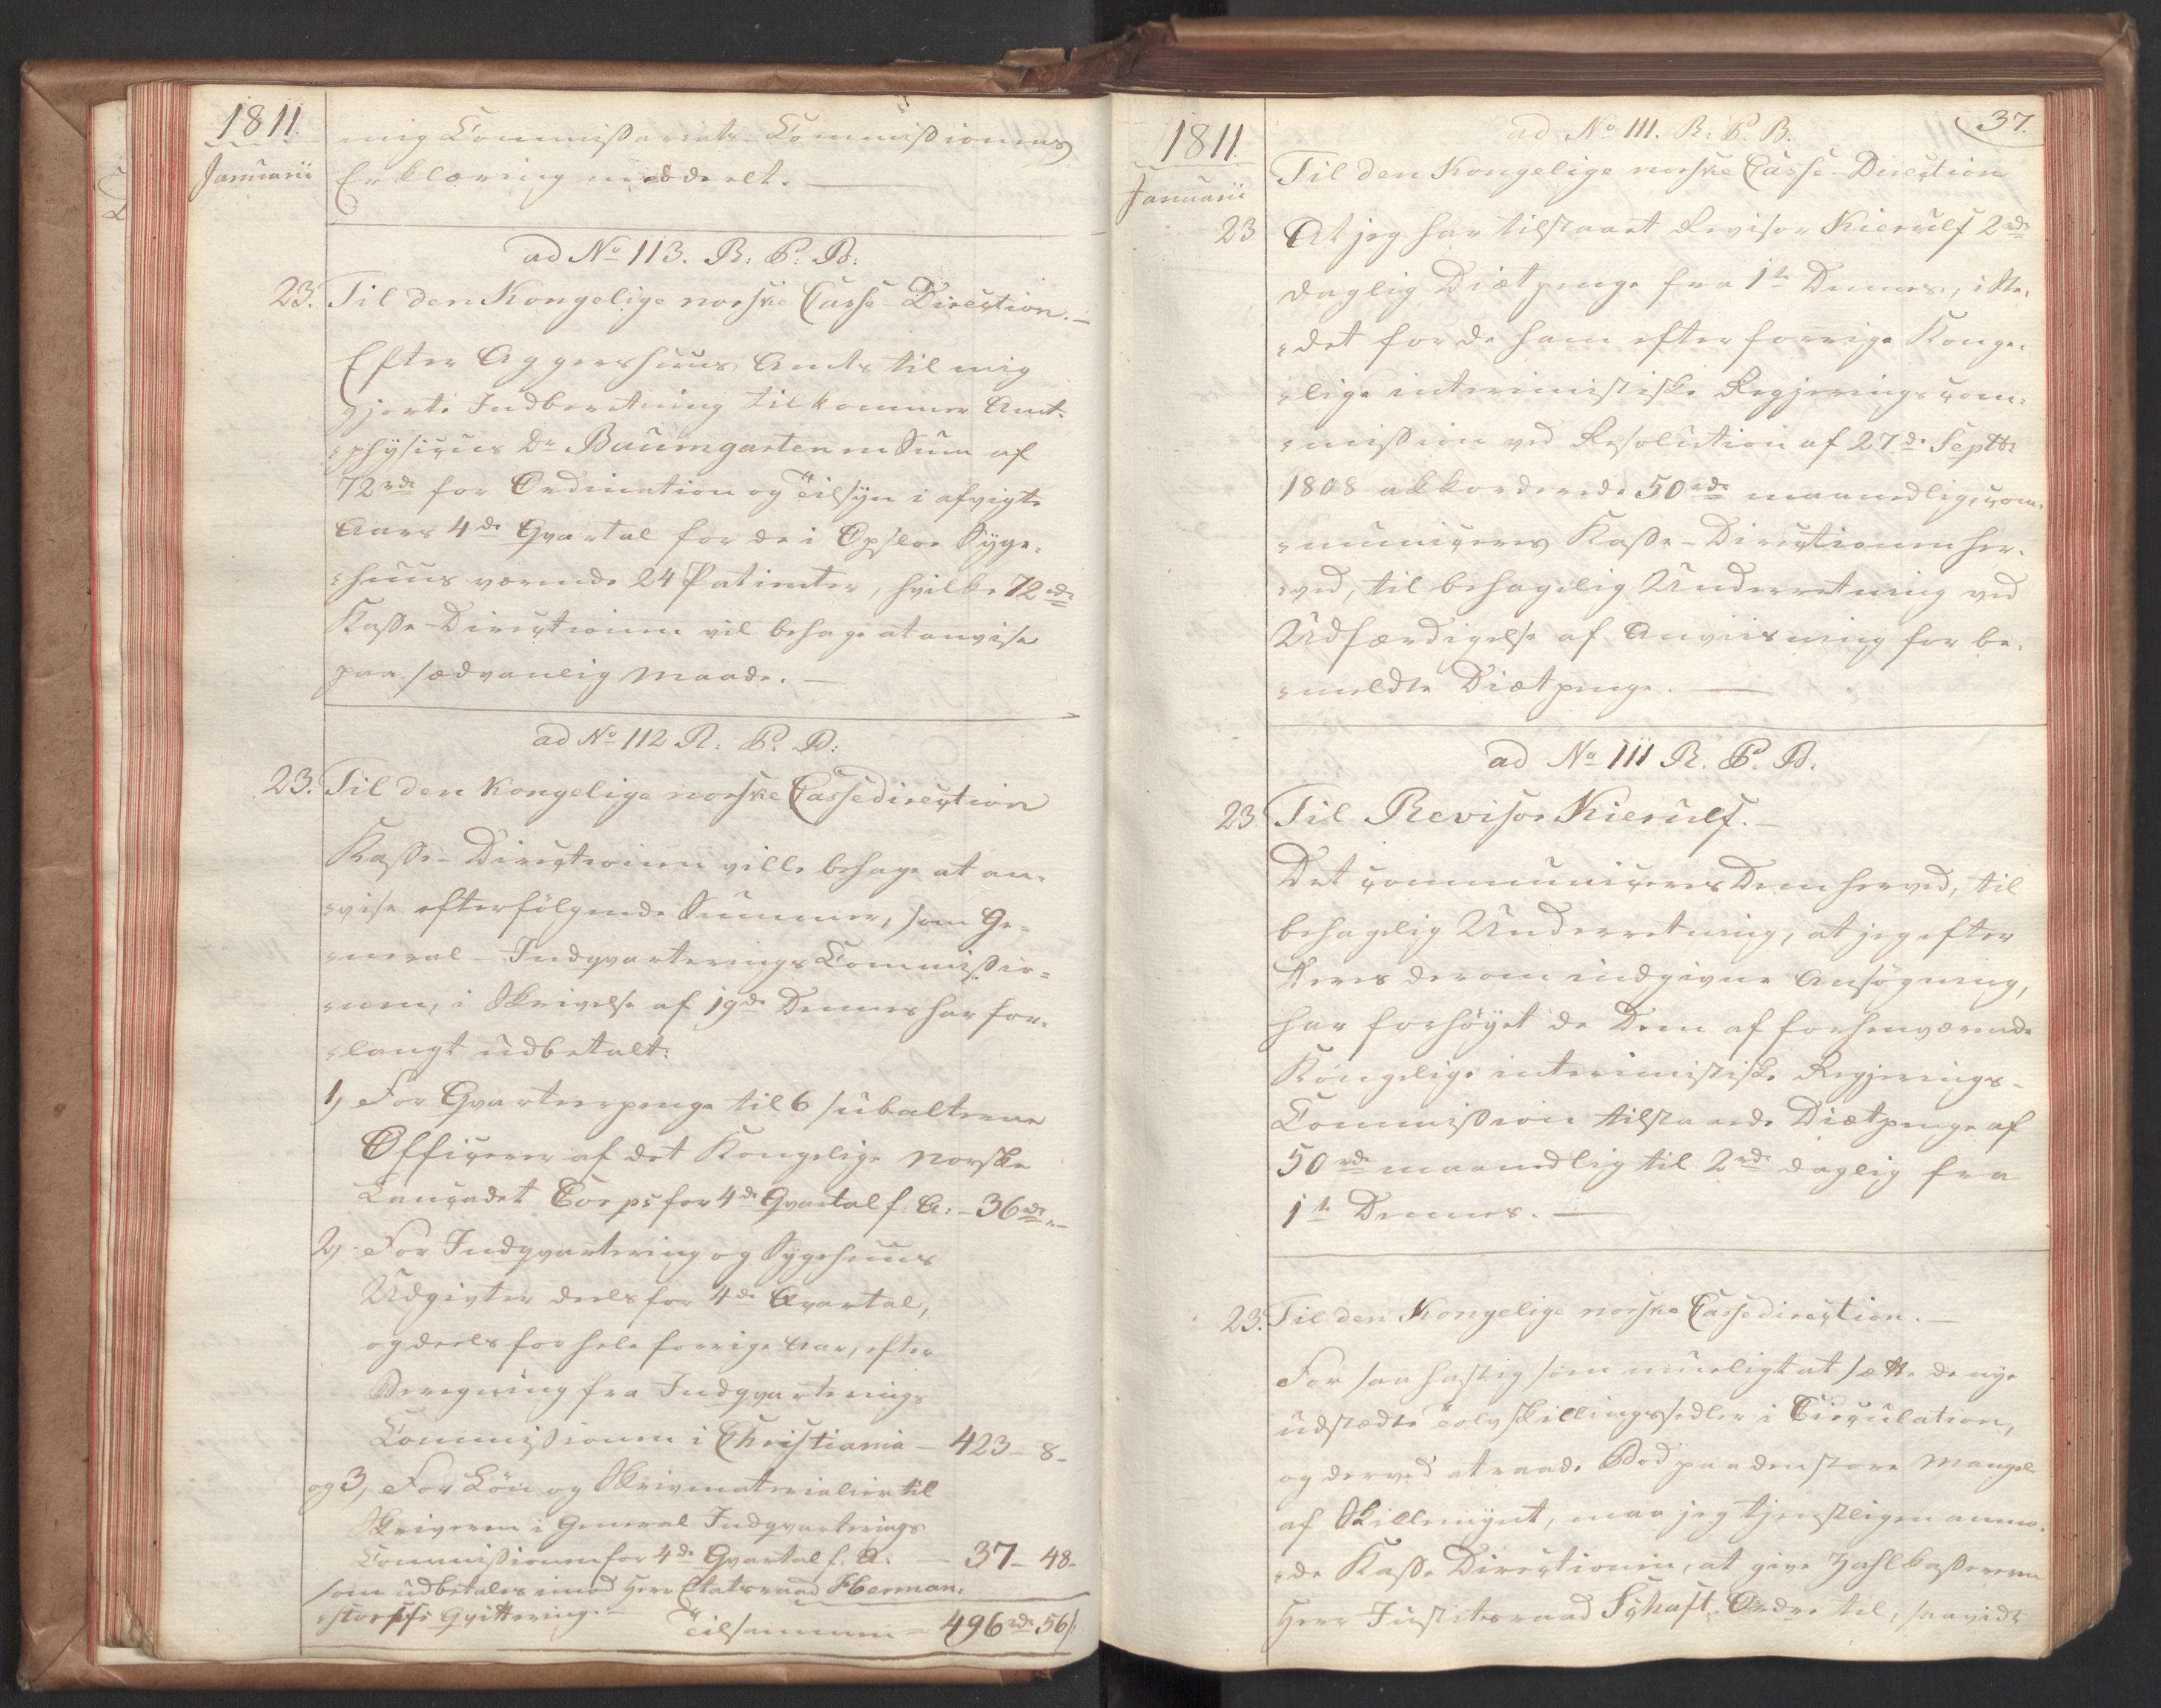 1811.
Januarii
mig Commissariats-Commissionens
Erklæring meddeelt. —
ad No 113. R: P. B:
23. Til den Kongelige norske Casse-Direction. —
Efter Aggershuus Amts til mig
gjorte Indberetning tilkommer Amt-
physicus Dr Baumgarten en Sum af
72 rdr for Ordination og Tilsyn i afvigte
Aars 4de Qvartal for de i Opsloe Syge-
huus værende 24 Patienter, hvilke 72 rdr
Kasse-Directionen vil behage at anvise
paa sædvanlig Maade. —
ad No 112 R: P. B:
23. Til den kongelige norske Cassedirection
Kasse-Directionen ville behage at an-
vise efterfølgende Summer, som Ge-
neral-Indqvarterings Commissio-
nen, i Skrivelse af 19de Dennes har for-
langt udbetalt:
1) For Qvarteerpenge til 6 subalterne
Officerer af det Kongelige norske
Landcadet Corps for 4de Qvartal f: A: - 36 rdr „ -
2) For Indqvartering og Sygehuus
Udgivter deels for 4de Qvartal,
og deels for hele forrige Aar, efter
Beregning fra Indqvarterings
Commissionen i Christiania - 423 - 8 -
og 3, For Løn og Skrivmaterialier til
Skriveren i General Indqvarterings
Commissionen for 4de Qvartal f. A: - 37 - 48 -
som udbetales imod Herr Etatsraad Herman-
storffs Qvittering. —
Tilsammen = 496 rdr 56 s:
37.
1811.
Januarii
ad No 111. R: P. B.
Til den Kongelige norske Casse-Direction
23 At jeg har tilstaaet Revisor Kierulf 2 rdr
daglig Diætpenge fra 1te Dennes, iste-
det for de ham efter forrige Konge-
lige interimistiske Regjeringscom-
mission ved Resolution af 27de Septbr
1808 akkorderede 50 rdr maanedlig, com-
municeres Kasse-Directionen her-
ved, til behagelig Underretning ved
Udfærdigelse af Anviisning for be-
meldte Diætpenge. —
ad No 111 R. P. B.
23 Til Revisor Kierulf. —
Det communiceres Dem herved, til
behagelig Underretning, at jeg efter
Deres derom indgivne Ansøgning,
har forhøyet de Dem af forhenværende
Kongelige interimistiske Regjerings-
Commission tilstaaede Diætpenge af
50 rdr maanedlig til 2 rdr daglig fra
1te Dennes. —
23. Til den Kongelige norske Cassedirection. —
For saa hastig som mueligt at sætte de nye
udstædte Tolvskillingssedler i Circulation,
og derved at raade Bod paa den store Mangel
af Skillemynt, maa jeg tjenstligen anmo-
de Kasse Directionen, at give Zahlkasserern
Herr Justitsraad Schaft Ordre til, saavidt